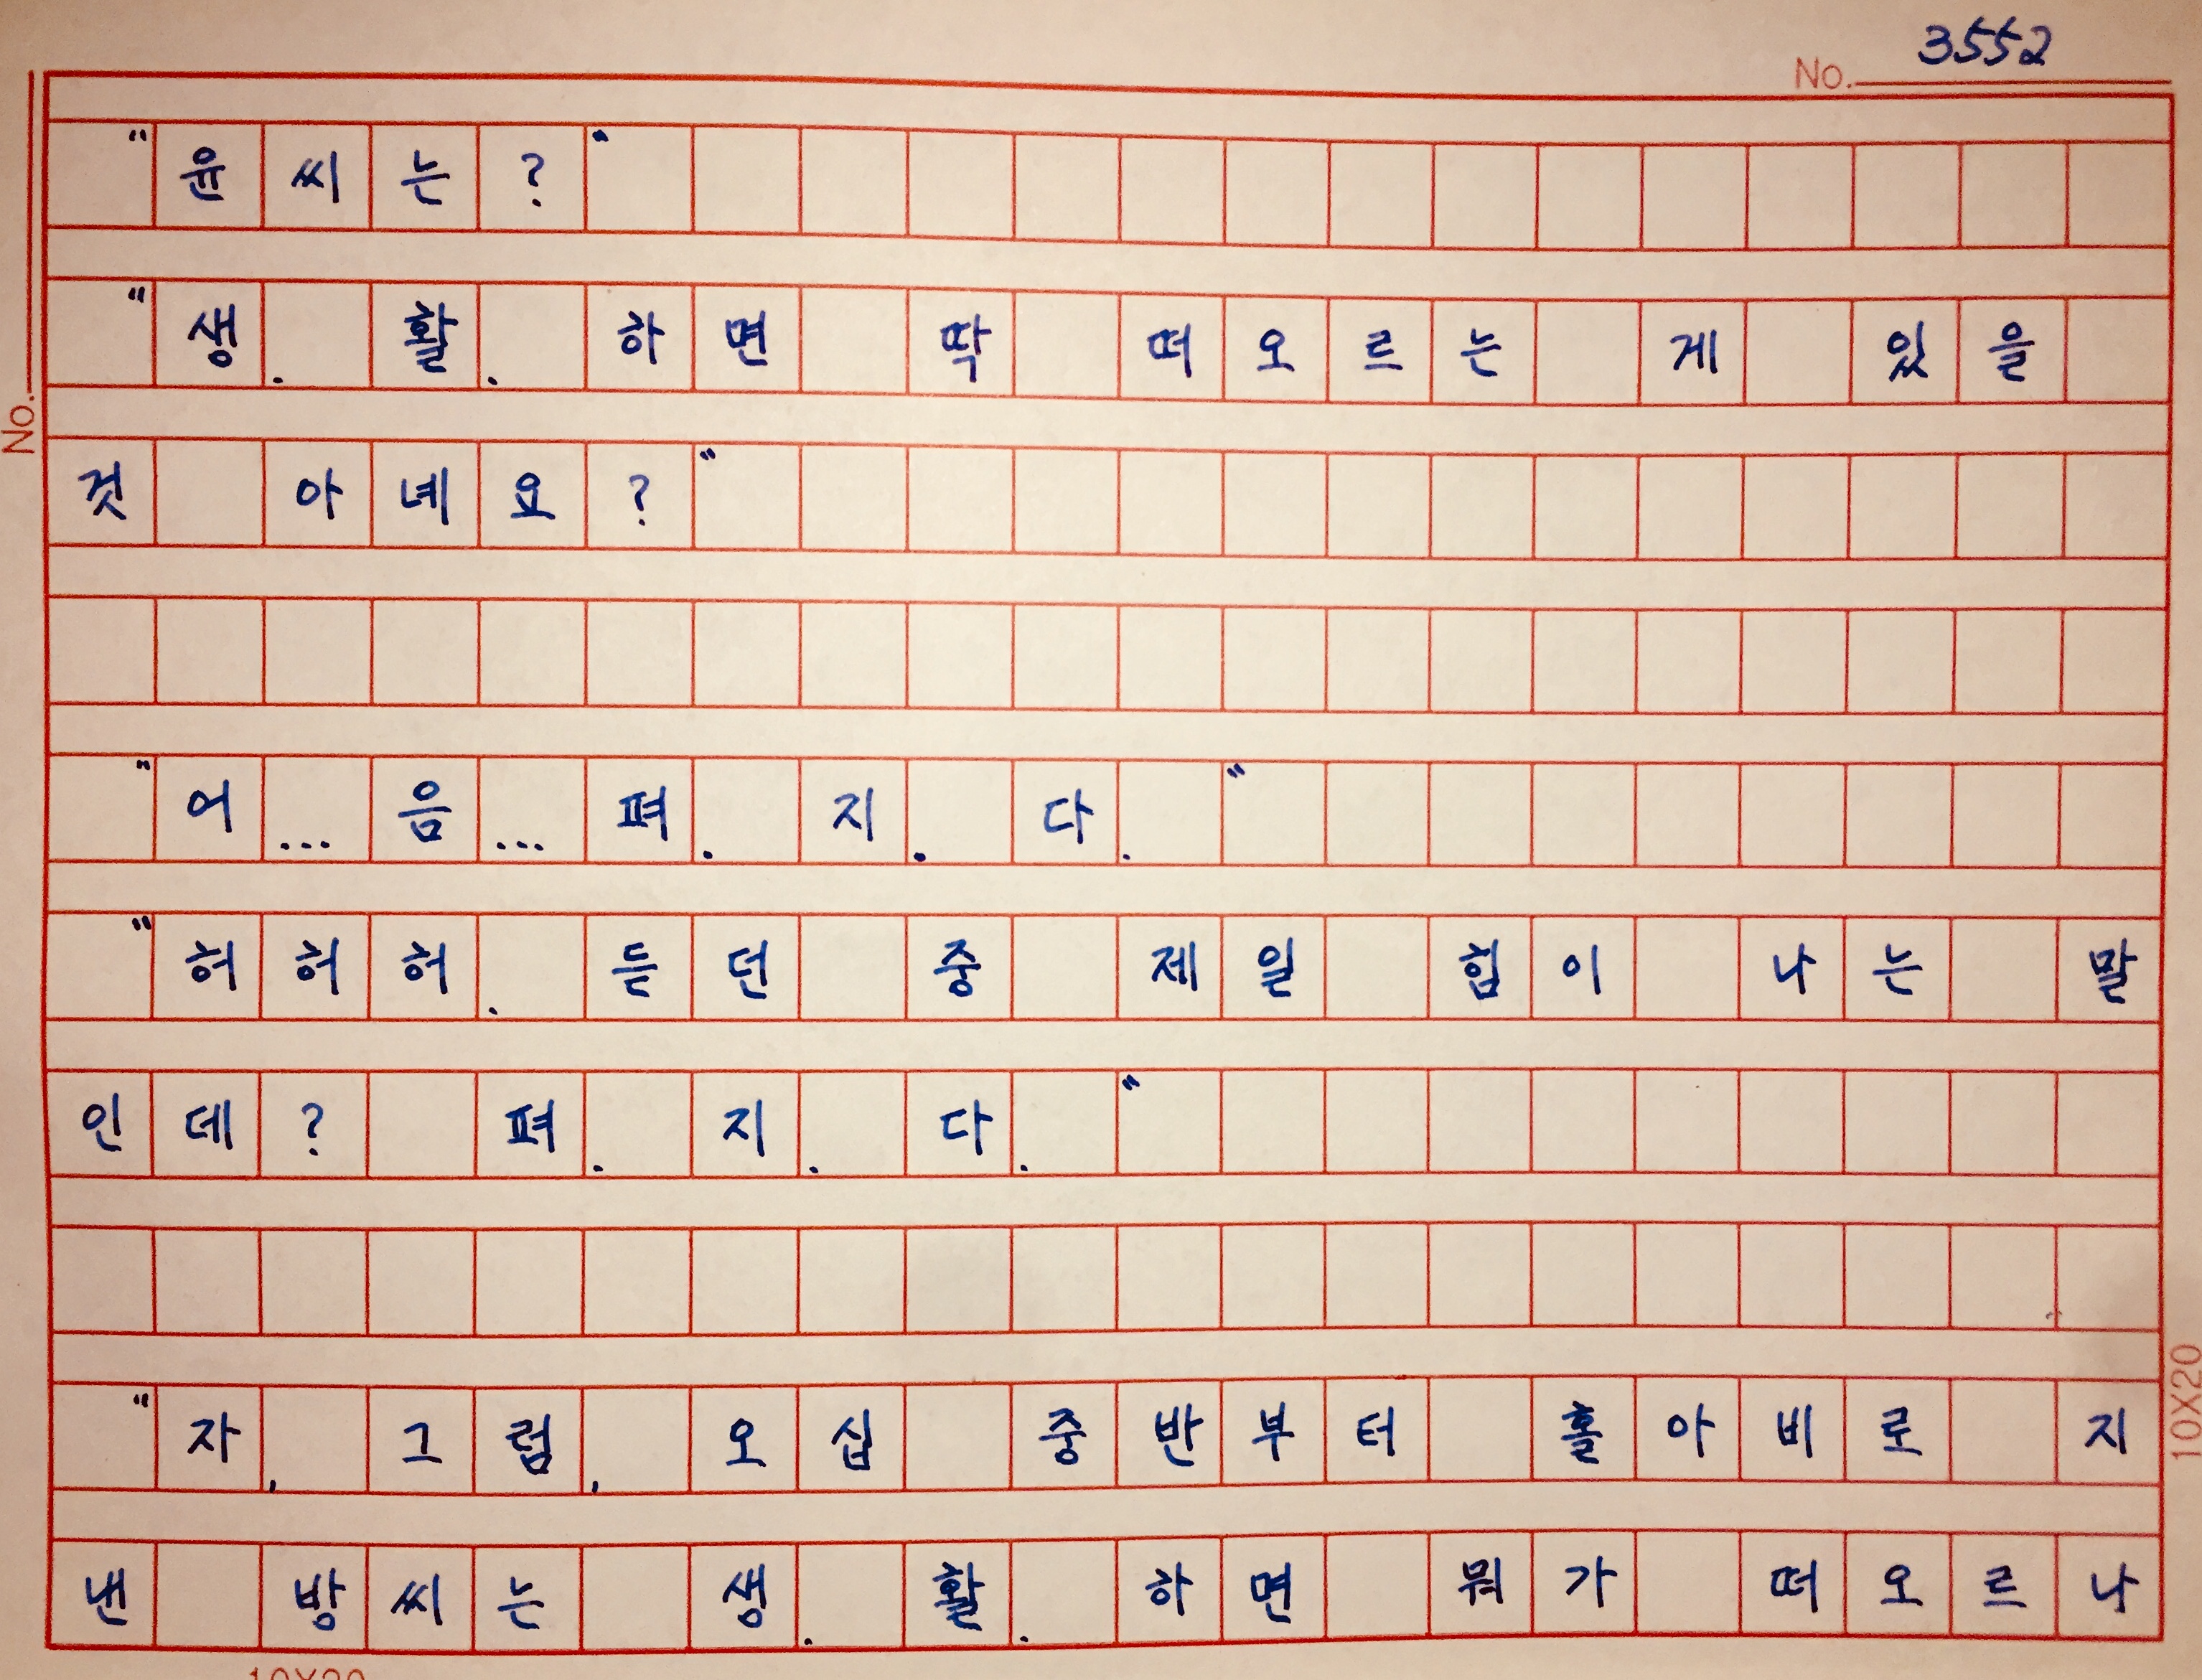 No. 3552
No.
"윤씨는?"
"생. 활. 하면 딱 떠오르는 게 있을
것 아녜요?"
"어... 음... 펴. 지. 다."
"허허허. 듣던 중 제일 힘이 나는 말
인데? 펴. 지. 다."
"자, 그럼, 오십 중반부터 홀아비로 지
낸 방씨는 생. 활. 하면 뭐가 떠오르나
10X20
10X20